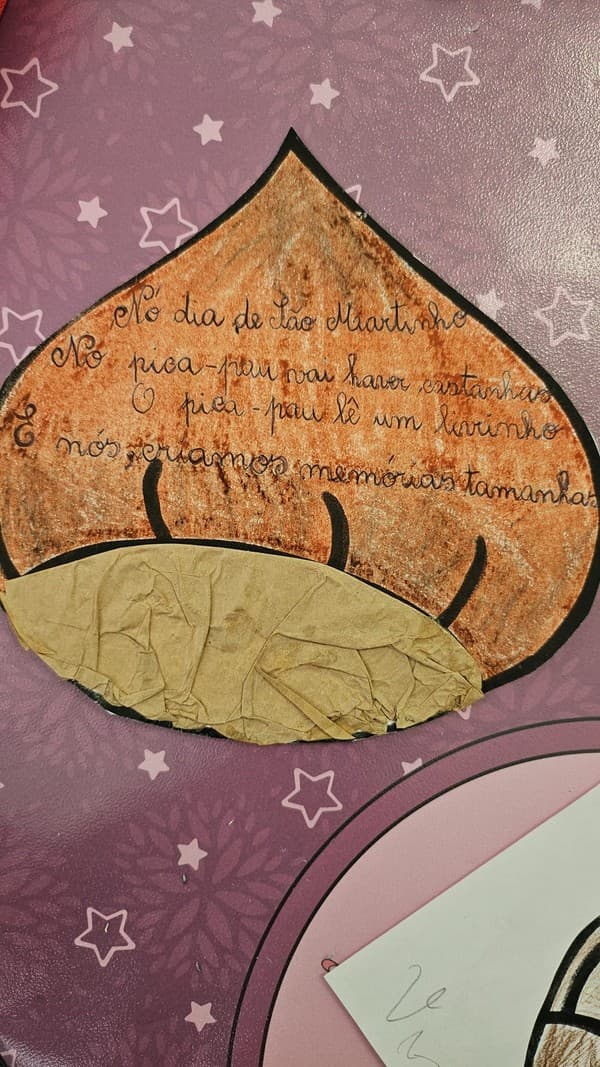 Nó dia de São Martinho
No pica-pau vai haver castanhas
O pica-pau lê um livrinho
E nós criamos memórias tamanhas